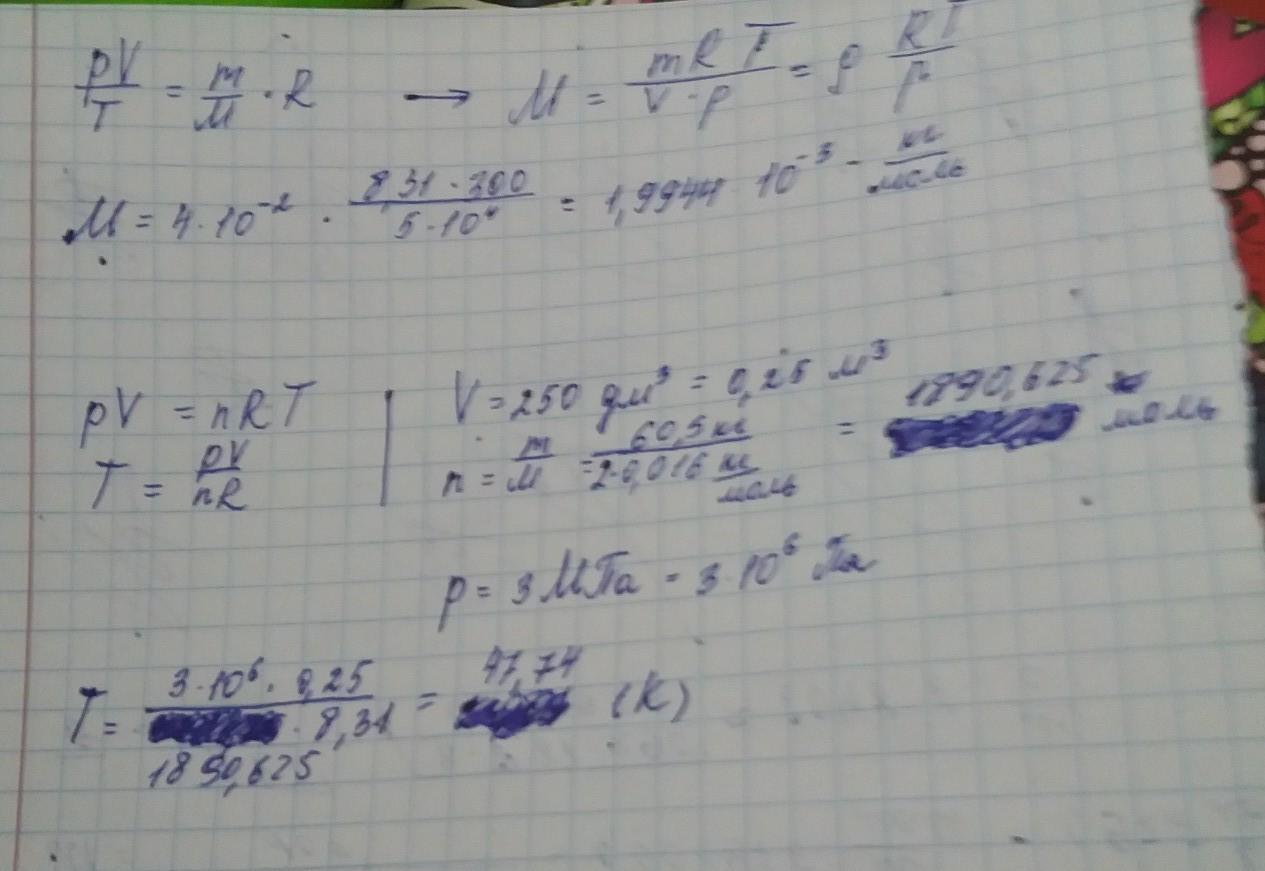 pV/T = m/M · R → M = mRT/V·p = ρ RT/p
M = 4·10⁻² · 8,31·300/5·10⁴ = 1,9944 10⁻³ - кг/моль
pV = nRT | V = 250 дм³ = 0,25 м³
T = pV/nR | n = m/M = 60,5 кг/2·0,016 кг/моль = 1890,625 моль
p = 3 МПа - 3·10⁶ Па
T = 3·10⁶ · 0,25/1890,625 · 8,31 = 47,74 (K)